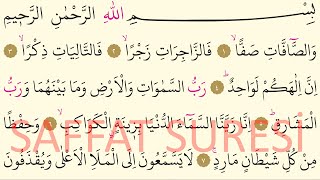 بِسْمِ اللّٰهِ الرَّحْمٰنِ الرَّحِيمِ
وَالصَّٓافَّاتِ صَفًّاۙ ﴿١﴾ فَالزَّاجِرَاتِ زَجْرًاۙ ﴿٢﴾ فَالتَّالِيَاتِ ذِكْرًاۙ ﴿٣﴾
اِنَّ اِلٰهَكُمْ لَوَاحِدٌۜ ﴿٤﴾ رَبُّ السَّمٰوَاتِ وَالْاَرْضِ وَمَا بَيْنَهُمَا وَرَبُّ
الْمَشَارِقِۜ ﴿٥﴾ اِنَّا زَيَّنَّا السَّمَٓاءَ الدُّنْيَا بِزِينَةٍۨ الْكَوَاكِبِۙ ﴿٦﴾ وَحِفْظًا
SAFFAT SURESİ
مِنْ كُلِّ شَيْطَانٍ مَارِدٍۚ ﴿٧﴾ لَا يَسَّمَّعُونَ اِلَى الْمَلَأِ الْاَعْلٰى وَيُقْذَفُونَ